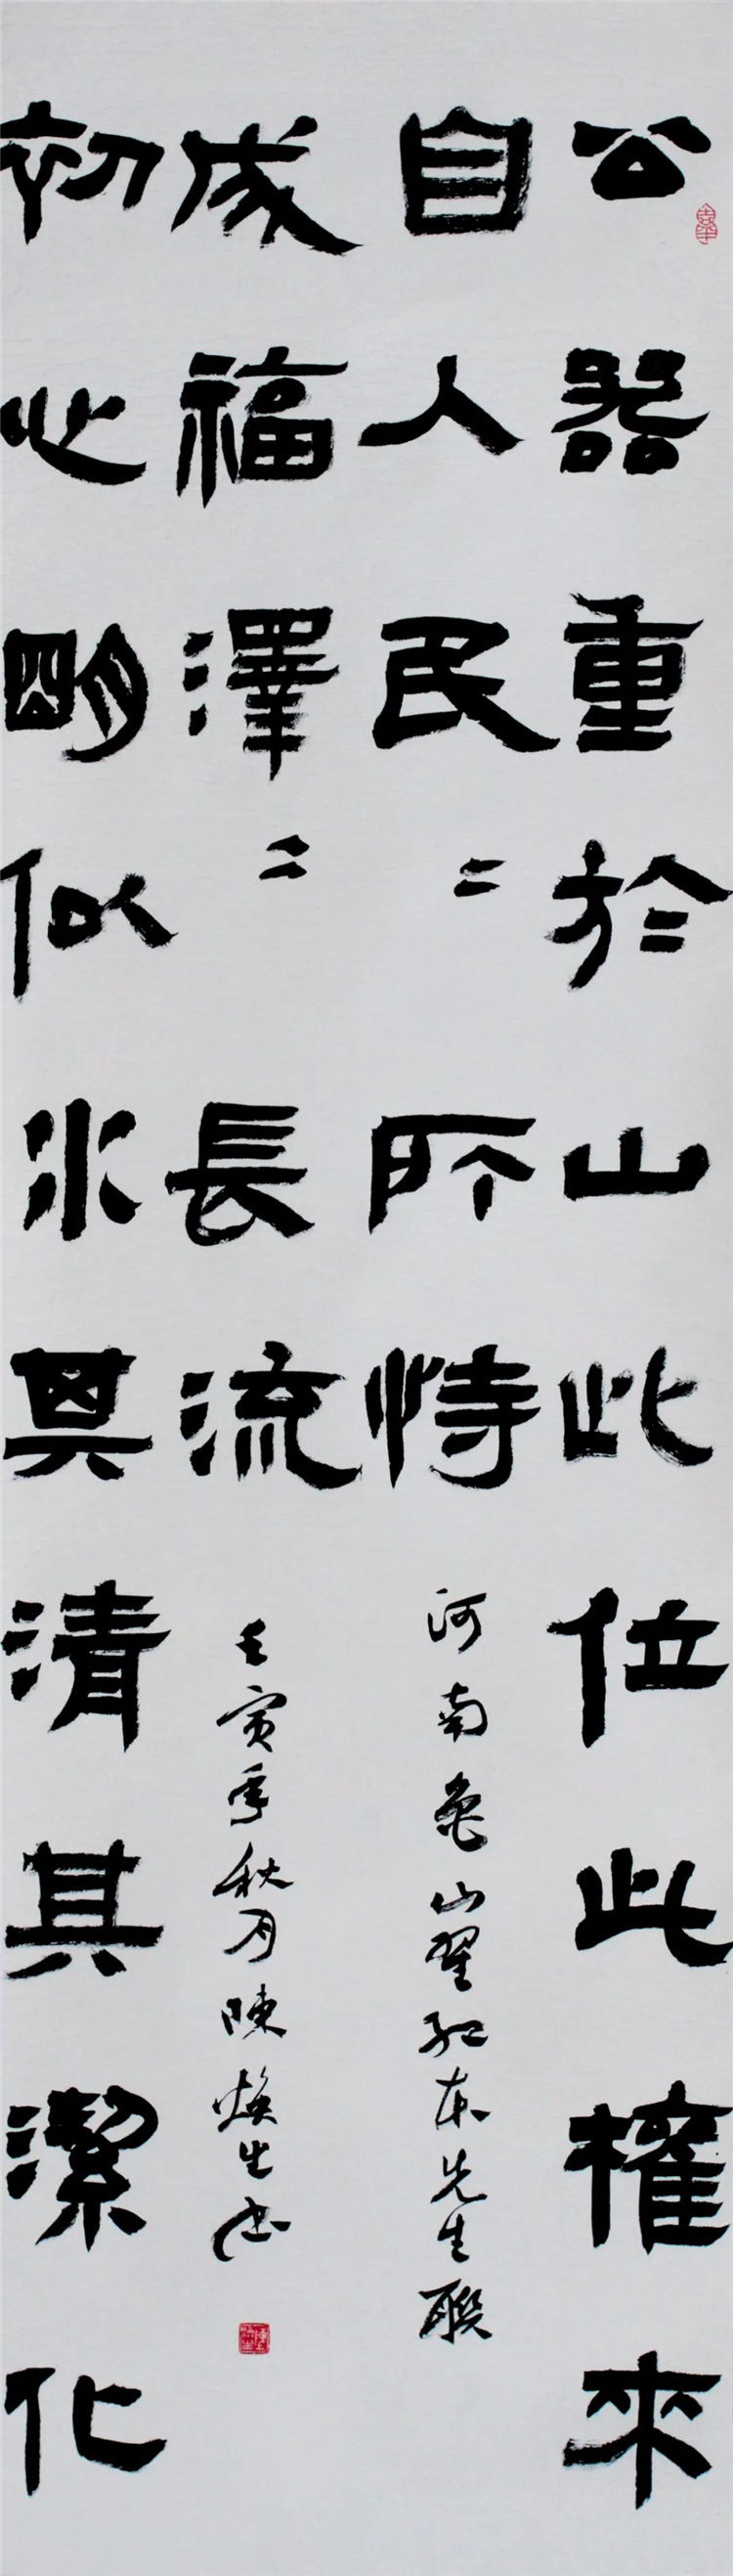 公器重於山此位此權來
自人民〻所恃
河南魯山翟紅本先生聯
初心明似水其清其潔化
成福澤〻長流
壬寅年秋月陳煥生書